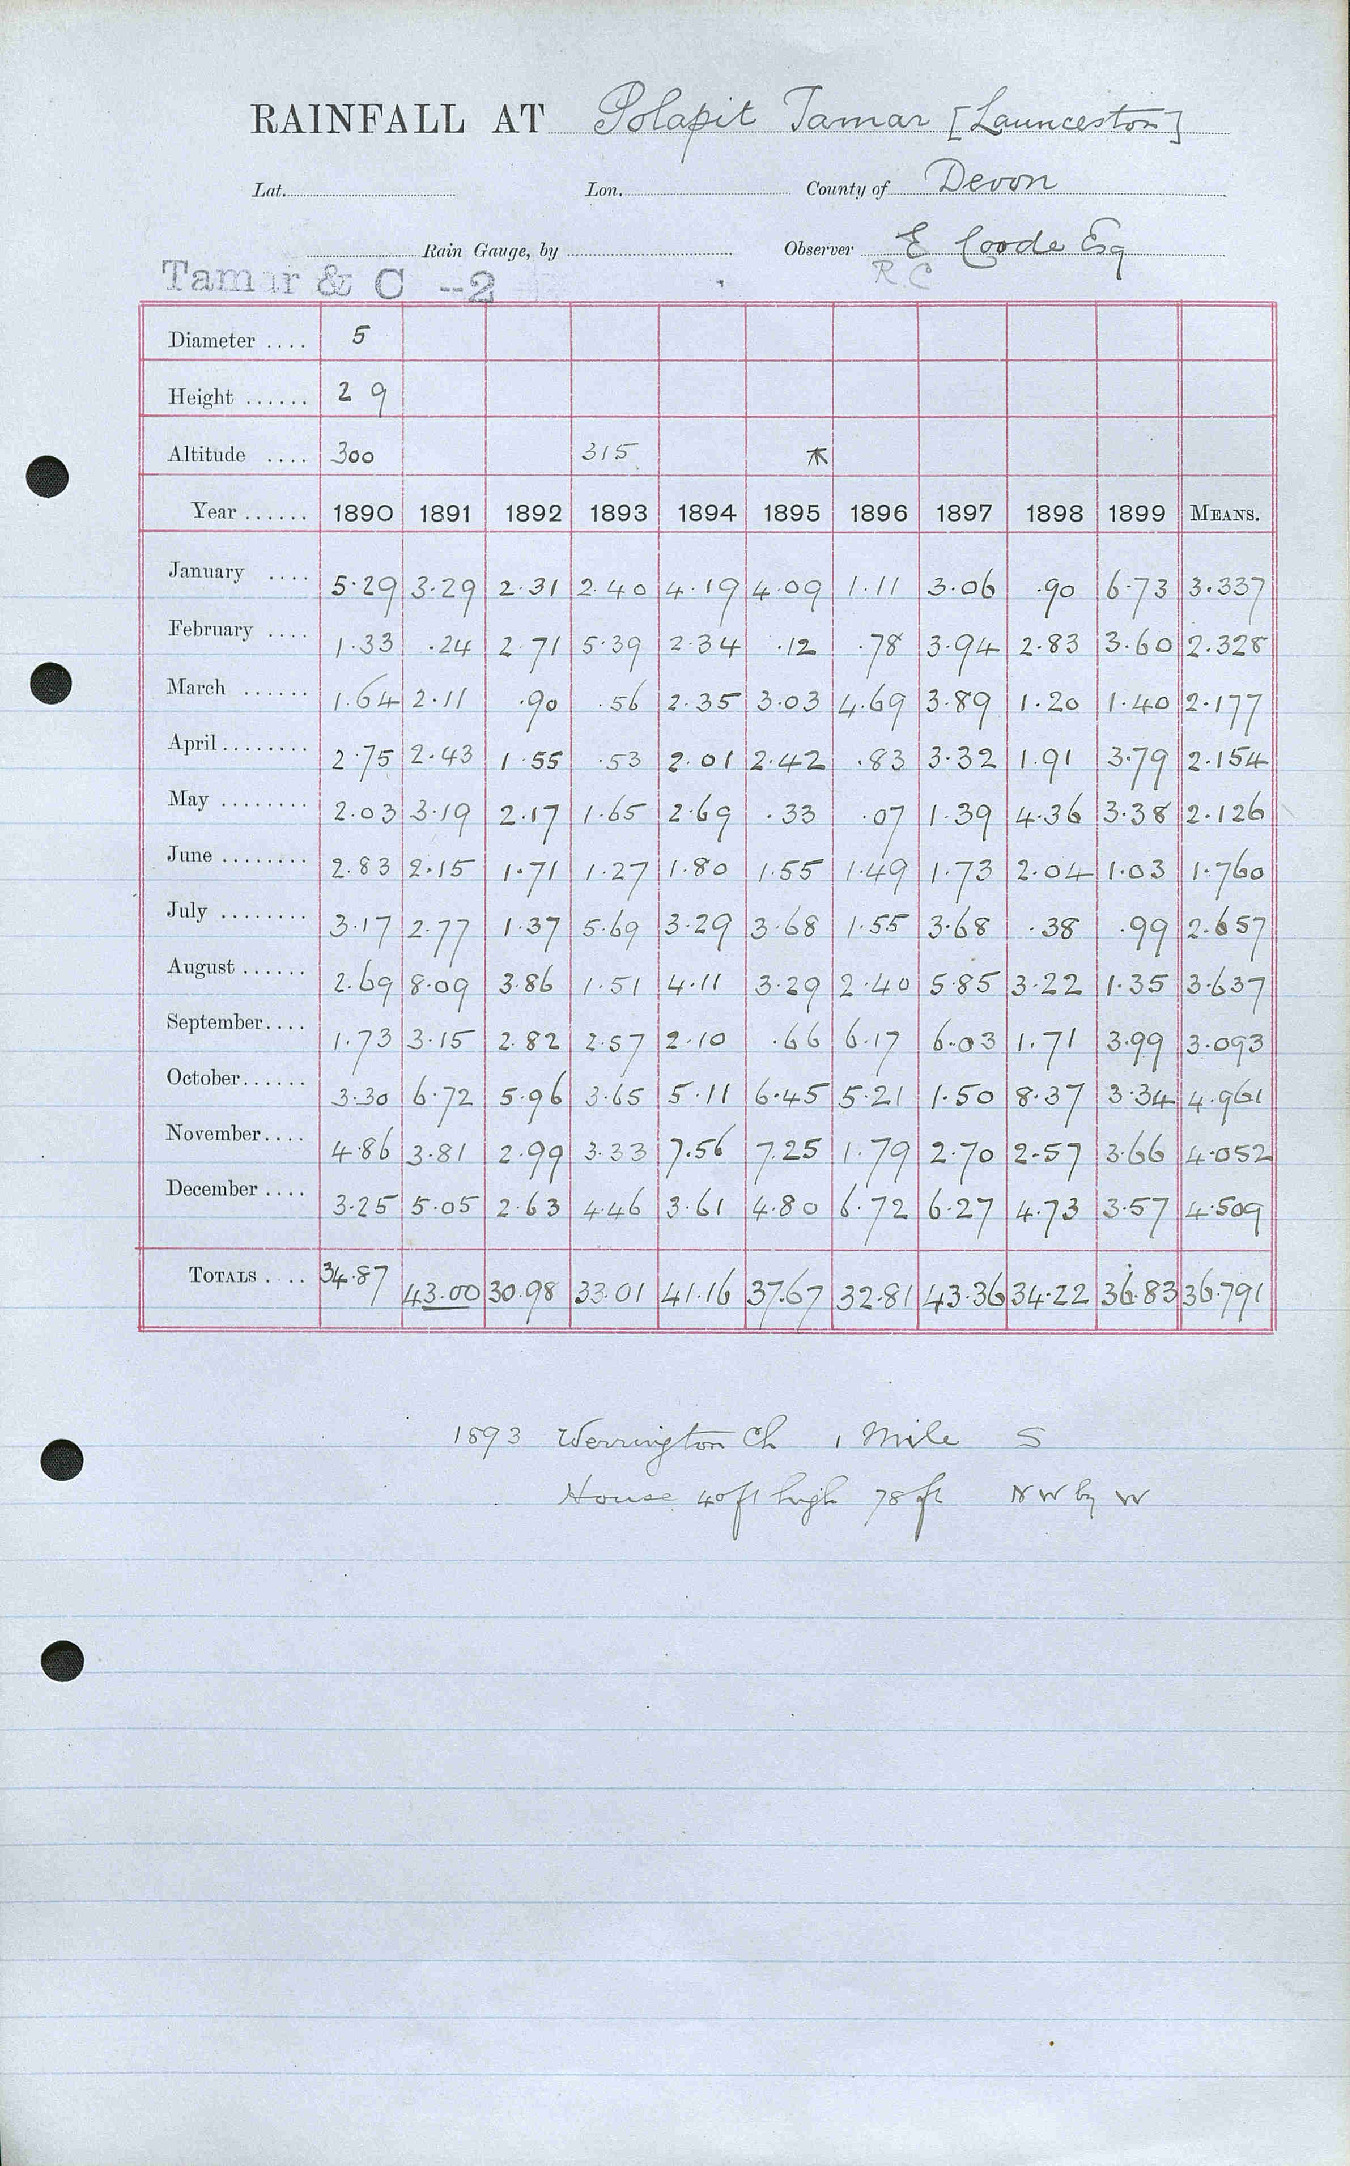 RAINFALL AT Polapit Tamar [Launceston]
Lat. Lon. County of Devon
Rain Gauge, by Observer E Coode Esq
R.C
Tamar & C --2
Diameter .... 5
Height ...... 2 9
Altitude .... 300 315 ⚹
Year ...... 1890 1891 1892 1893 1894 1895 1896 1897 1898 1899 MEANS.
January .... 5.29 3.29 2.31 2.40 4.19 4.09 1.11 3.06 .90 6.73 3.337
February .... 1.33 .24 2.71 5.39 2.34 .12 .78 3.94 2.83 3.60 2.328
March ...... 1.64 2.11 .90 .56 2.35 3.03 4.69 3.89 1.20 1.40 2.177
April ........ 2.75 2.43 1.55 .53 2.01 2.42 .83 3.32 1.91 3.79 2.154
May ........ 2.03 3.19 2.17 1.65 2.69 .33 .07 1.39 4.36 3.38 2.126
June ........ 2.83 2.15 1.71 1.27 1.80 1.55 1.49 1.73 2.04 1.03 1.760
July ........ 3.17 2.77 1.37 5.69 3.29 3.68 1.55 3.68 .38 .99 2.657
August ...... 2.69 8.09 3.86 1.51 4.11 3.29 2.40 5.85 3.22 1.35 3.637
September.... 1.73 3.15 2.82 2.57 2.10 .66 6.17 6.03 1.71 3.99 3.093
October...... 3.30 6.72 5.96 3.65 5.11 6.45 5.21 1.50 8.37 3.34 4.961
November.... 4.86 3.81 2.99 3.33 7.56 7.25 1.79 2.70 2.57 3.66 4.052
December .... 3.25 5.05 2.63 4.46 3.61 4.80 6.72 6.27 4.73 3.57 4.509
TOTALS .... 34.87 43.00 30.98 33.01 41.16 37.67 32.81 43.36 34.22 36.83 36.791
1893 Werrington Ch 1 Mile S
House 40ft high 78 ft NW by W